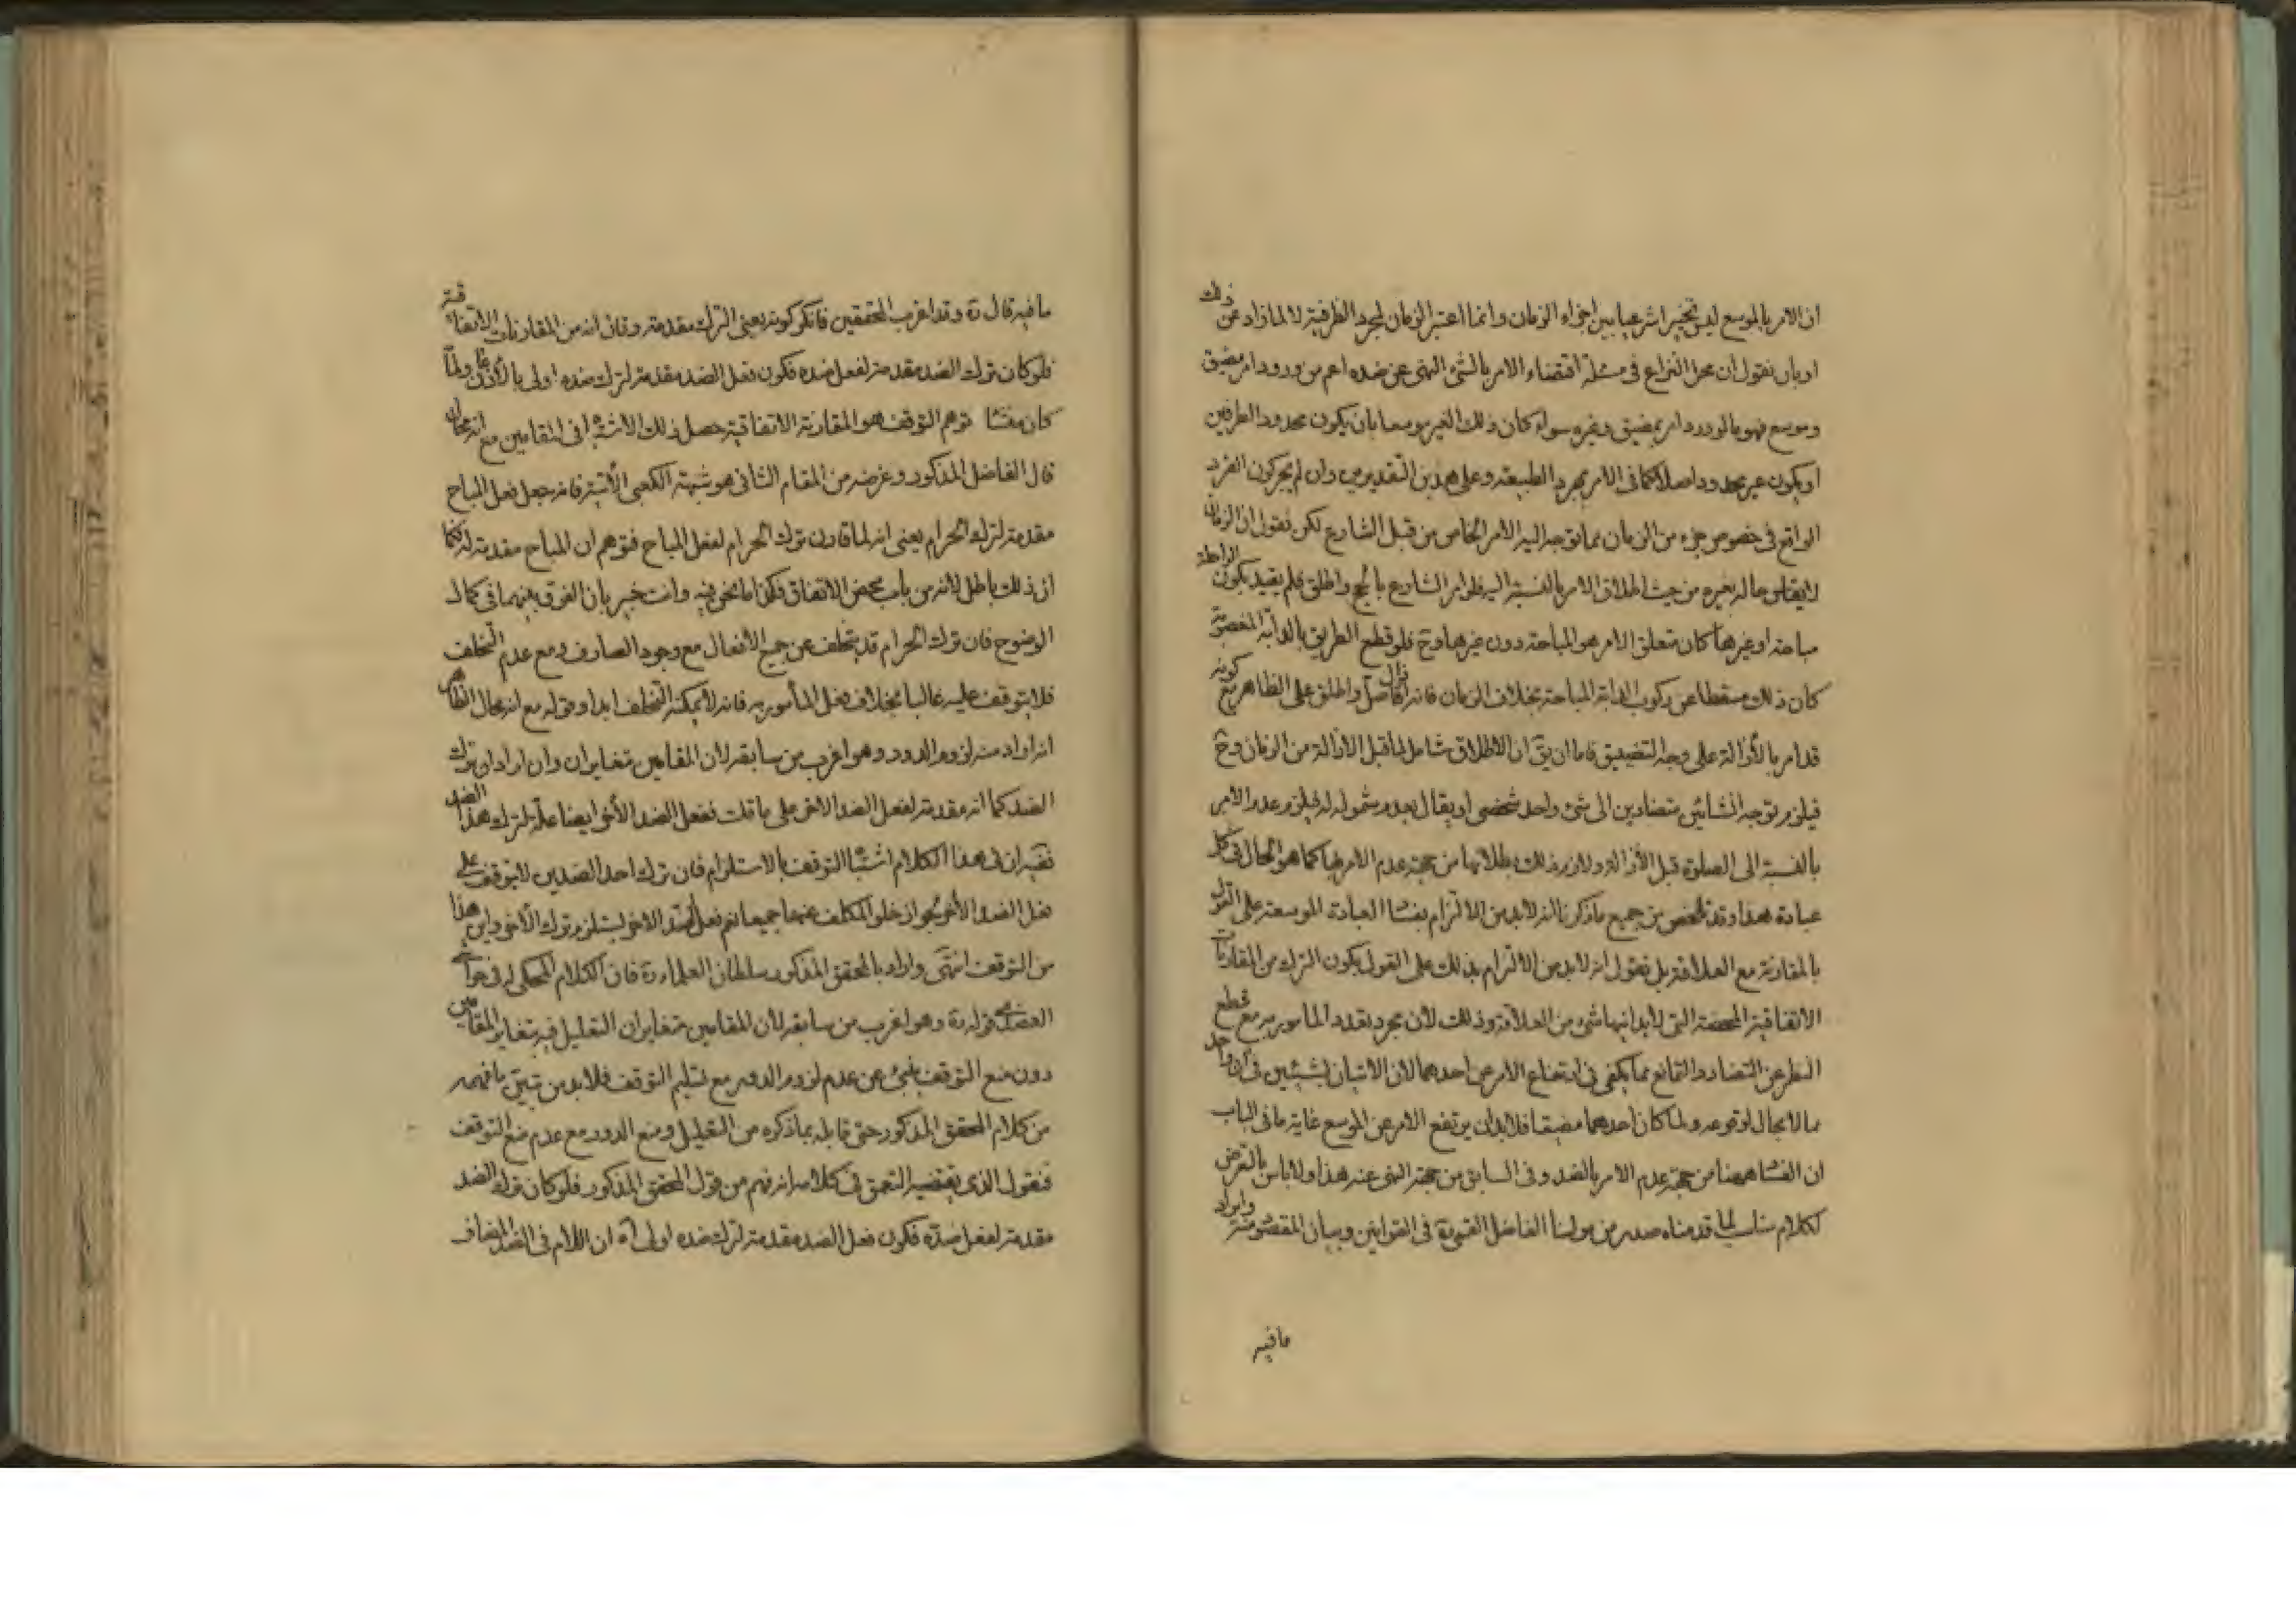 ان الامر بالموسع ليس تخييرا شرعيا بين اجزاء الزمان وانما اعتبر الزمان لمجرد الظرفية لا لما زاد عن ذلك
او بان نقول ان محل النزاع في مسئلة اقتضاء الامر بالشئ النهى عن ضده اعم من ورود امر مضيق
وموسع فهو مالو ورد امر بمضيق وغيره سواء كان ذلك الغير موسعا بان يكون محدود الطرفين
او يكون غير محدود اصلا كما في الامر بمجرد الطبيعة وعلى هذين التقديرين وان لم يجز كون الفرد
الواقع في خصوص جزء من الزمان مما توجه اليه الامر الخاص من قبل الشارع لكن نقول ان الزمان
لا يقاس حاله بغيره من حيث اطلاق الامر بالنسبة اليه فلو امر الشارع بالحج واطلق ولم يقيد بكون الراحلة
مباحة او غيرها كان متعلق الامر هو المباحة دون غيرها وح فلو قطع الطريق بالدابة المغصوبة
كان ذلك مسقطا عن ركوب الدابة المباحة بخلاف الزمان فانه اذا قال صل واطلق على الظاهر مع كونه
قد امر بالازالة على وجه التضييق فاما ان يق ان الاطلاق شامل لما قبل الازالة من الزمان وح
فيلزم توجه انشائين متضادين الى شئ واحد شخصى او يقال بعدم شموله له فيلزم عدم الامر
بالنسبة الى الصلوة قبل الازالة ولازم ذلك بطلانها من جهة عدم الامر بها كما هو الحال في كل
عبادة هذا وقد تلخص من جميع ما ذكرنا انه لابد من الالتزام بفساد العبادة الموسعة على القول
بالمقارنة مع العلاقة بل نقول انه لابد من الالتزام بذلك على القول بكون الترك من المقارنات
الاتفاقية المحضة التى لا بد انها شئ من العلاقة وذلك لان مجرد تعدد المامور به مع قطع
النظر عن التضاد والتمانع مما يكفى في ارتفاع الامر عن احدهما لان الاتيان بشيئين في ان واحد
مما لا مجال لوقوعه ولما كان احدهما مضيقا فلابد ان يرتفع الامر عن الموسع غاية ما في الباب
ان الفساد ههنا من جهة عدم الامر بالضد وفى السابق من جهة النهى عنه هذا ولا باس بالتعرض
لكلام مناسب لما قدمناه صدر من مولينا الفاضل القمى ره في القوانين وبيان المقصود منه وايراد
مافيه
ما فيه قال ره وقد اغرب المحققين فانكر كونه يعنى الترك مقدمة وقال انه من المقارنات الاتفاقية
فلو كان ترك الضد مقدمة لفعل ضده فكون فعل الضد مقدمة لترك ضده اولى بالاذعان ولما
كان منشا توهم التوقف هو المقارنة الاتفاقية حصل ذلك الاشتباه في المقامين مع انه محال
قال الفاضل المذكور وغرضه من المقام الثانى هو شبهة الكعبى الآتية فانه جعل فعل المباح
مقدمة لترك الحرام يعنى انه لما قارن ترك الحرام لفعل المباح فتوهم ان المباح مقدمة له فكما
ان ذلك باطل لانه من باب محض الاتفاق فكذا ما نحن فيه وانت خبير بان الفرق بينهما في كمال
الوضوح فان ترك الحرام قد يتخلف عن جميع الافعال مع وجود الصارف ومع عدم التخلف
فلا يتوقف عليه غالبا بخلاف فعل المأمور به فانه لا يمكنه التخلف ابدا وقوله مع انه محال الظاهر
انه اراد منه لزوم الدور وهو اغرب من سابقه لان المقامين متغايران وان اراد ان ترك
الضد كما انه مقدمة لفعل الضد الاخر على ما قلت ففعل الضد الاخر ايضا علة لترك هذا الضد
ففيه ان في هذا الكلام اشتباه التوقف بالاستلزام فان ترك احد الضدين لا يتوقف على
فعل الضد الاخر لجواز خلو المكلف عنهما جميعا نعم فعل الضد الاخر يستلزم ترك الاخر واين هذا
من التوقف انتهى واراد بالمحقق المذكور سلطان العلماء ره فان الكلام المحكى له في حواشى
العضدى قوله ره وهو اغرب من سابقه لان المقامين متغايران التعليل فيه بتغاير المقامين
دون منع التوقف ينبئ عن عدم لزوم الدور مع تسليم التوقف فلابد من تبين ما فهمه
من كلام المحقق المذكور حتى قابله بما ذكره من التعليل ومنع الدور مع عدم منع التوقف
فنقول الذى يقتضيه التعمق في كلامه انه فهم من قول المحقق المذكور فلو كان ترك الضد
مقدمة لفعل ضده فكون فعل الضد مقدمة لترك ضده اولى اه ان اللام في الضد المضاف